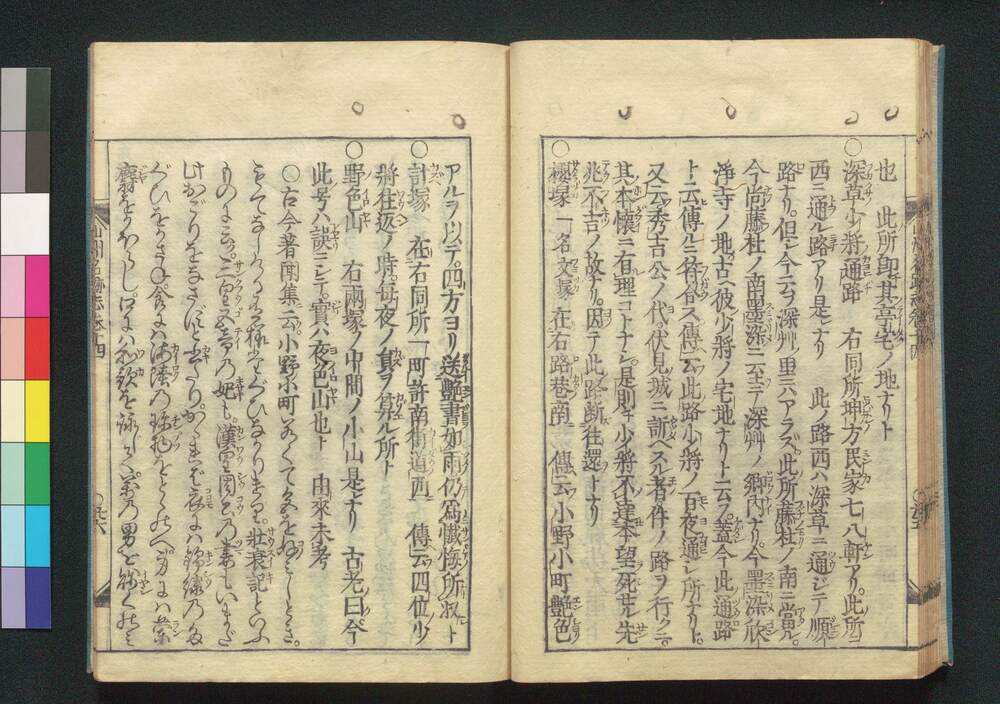 也　此所即其亭宅ノ地ナリト
○深草少將通路　右同所坤方民家七八軒アリ。此所ニ
西ニ通ル路アリ是レナリ　此ノ路西ハ深草ニ通ジテ順
路ナリ。但シ今云フ深艸ノ里ニハアラズ。此所藤杜ノ南ニ當ル。
今尚藤杜ノ南墨深ニ至テ深艸ノ鄉内ナリ。今墨深欣
淨寺ノ地。古ヘ彼少將ノ宅地ナリト云フ。蓋今此通路
ト云傳ルニ符合ス傳云此路少將ノ百夜通シ所ナリト。
又云秀吉公ノ代。伏見城ニ訴ヘスル者。件ノ路ヲ行クニ。
其本懷ニ有理コトナシ。是則チ少將不達本望死セル先
兆不吉ノ故ナリ。因テ此路斷往還トナリ
○櫻塚　一名文塚　在右路巷南　傳云小野小町艷色
アルヲ以テ。四方ヨリ送艷書如雨仍爲懺悔所收ト
○計塚　在右同所一町許南街道西　傳云四位少
將往返ノ時。毎夜ノ負ヲ算ル所ト
○野色山　右兩塚ノ中間ノ小山是ナリ　古老曰今
此号ハ訣ミシテ。實ハ夜色山也ト　由來未考
○古今著聞集ニ云。小野小町わかくて色をこのみしとき。
もてなしありさまたぐひなかりけり。壯衰記といふ
ものには。三皇五帝の妃も。漢王周公の妻もいまだ
此おごりをなさずとかきたり。かゝれば衣には錦繍のた
ぐひをかさね食には海陸の珍物をとゝのへ身には蘭
麝をかほらし。口には和歌を詠じて。萬の男を